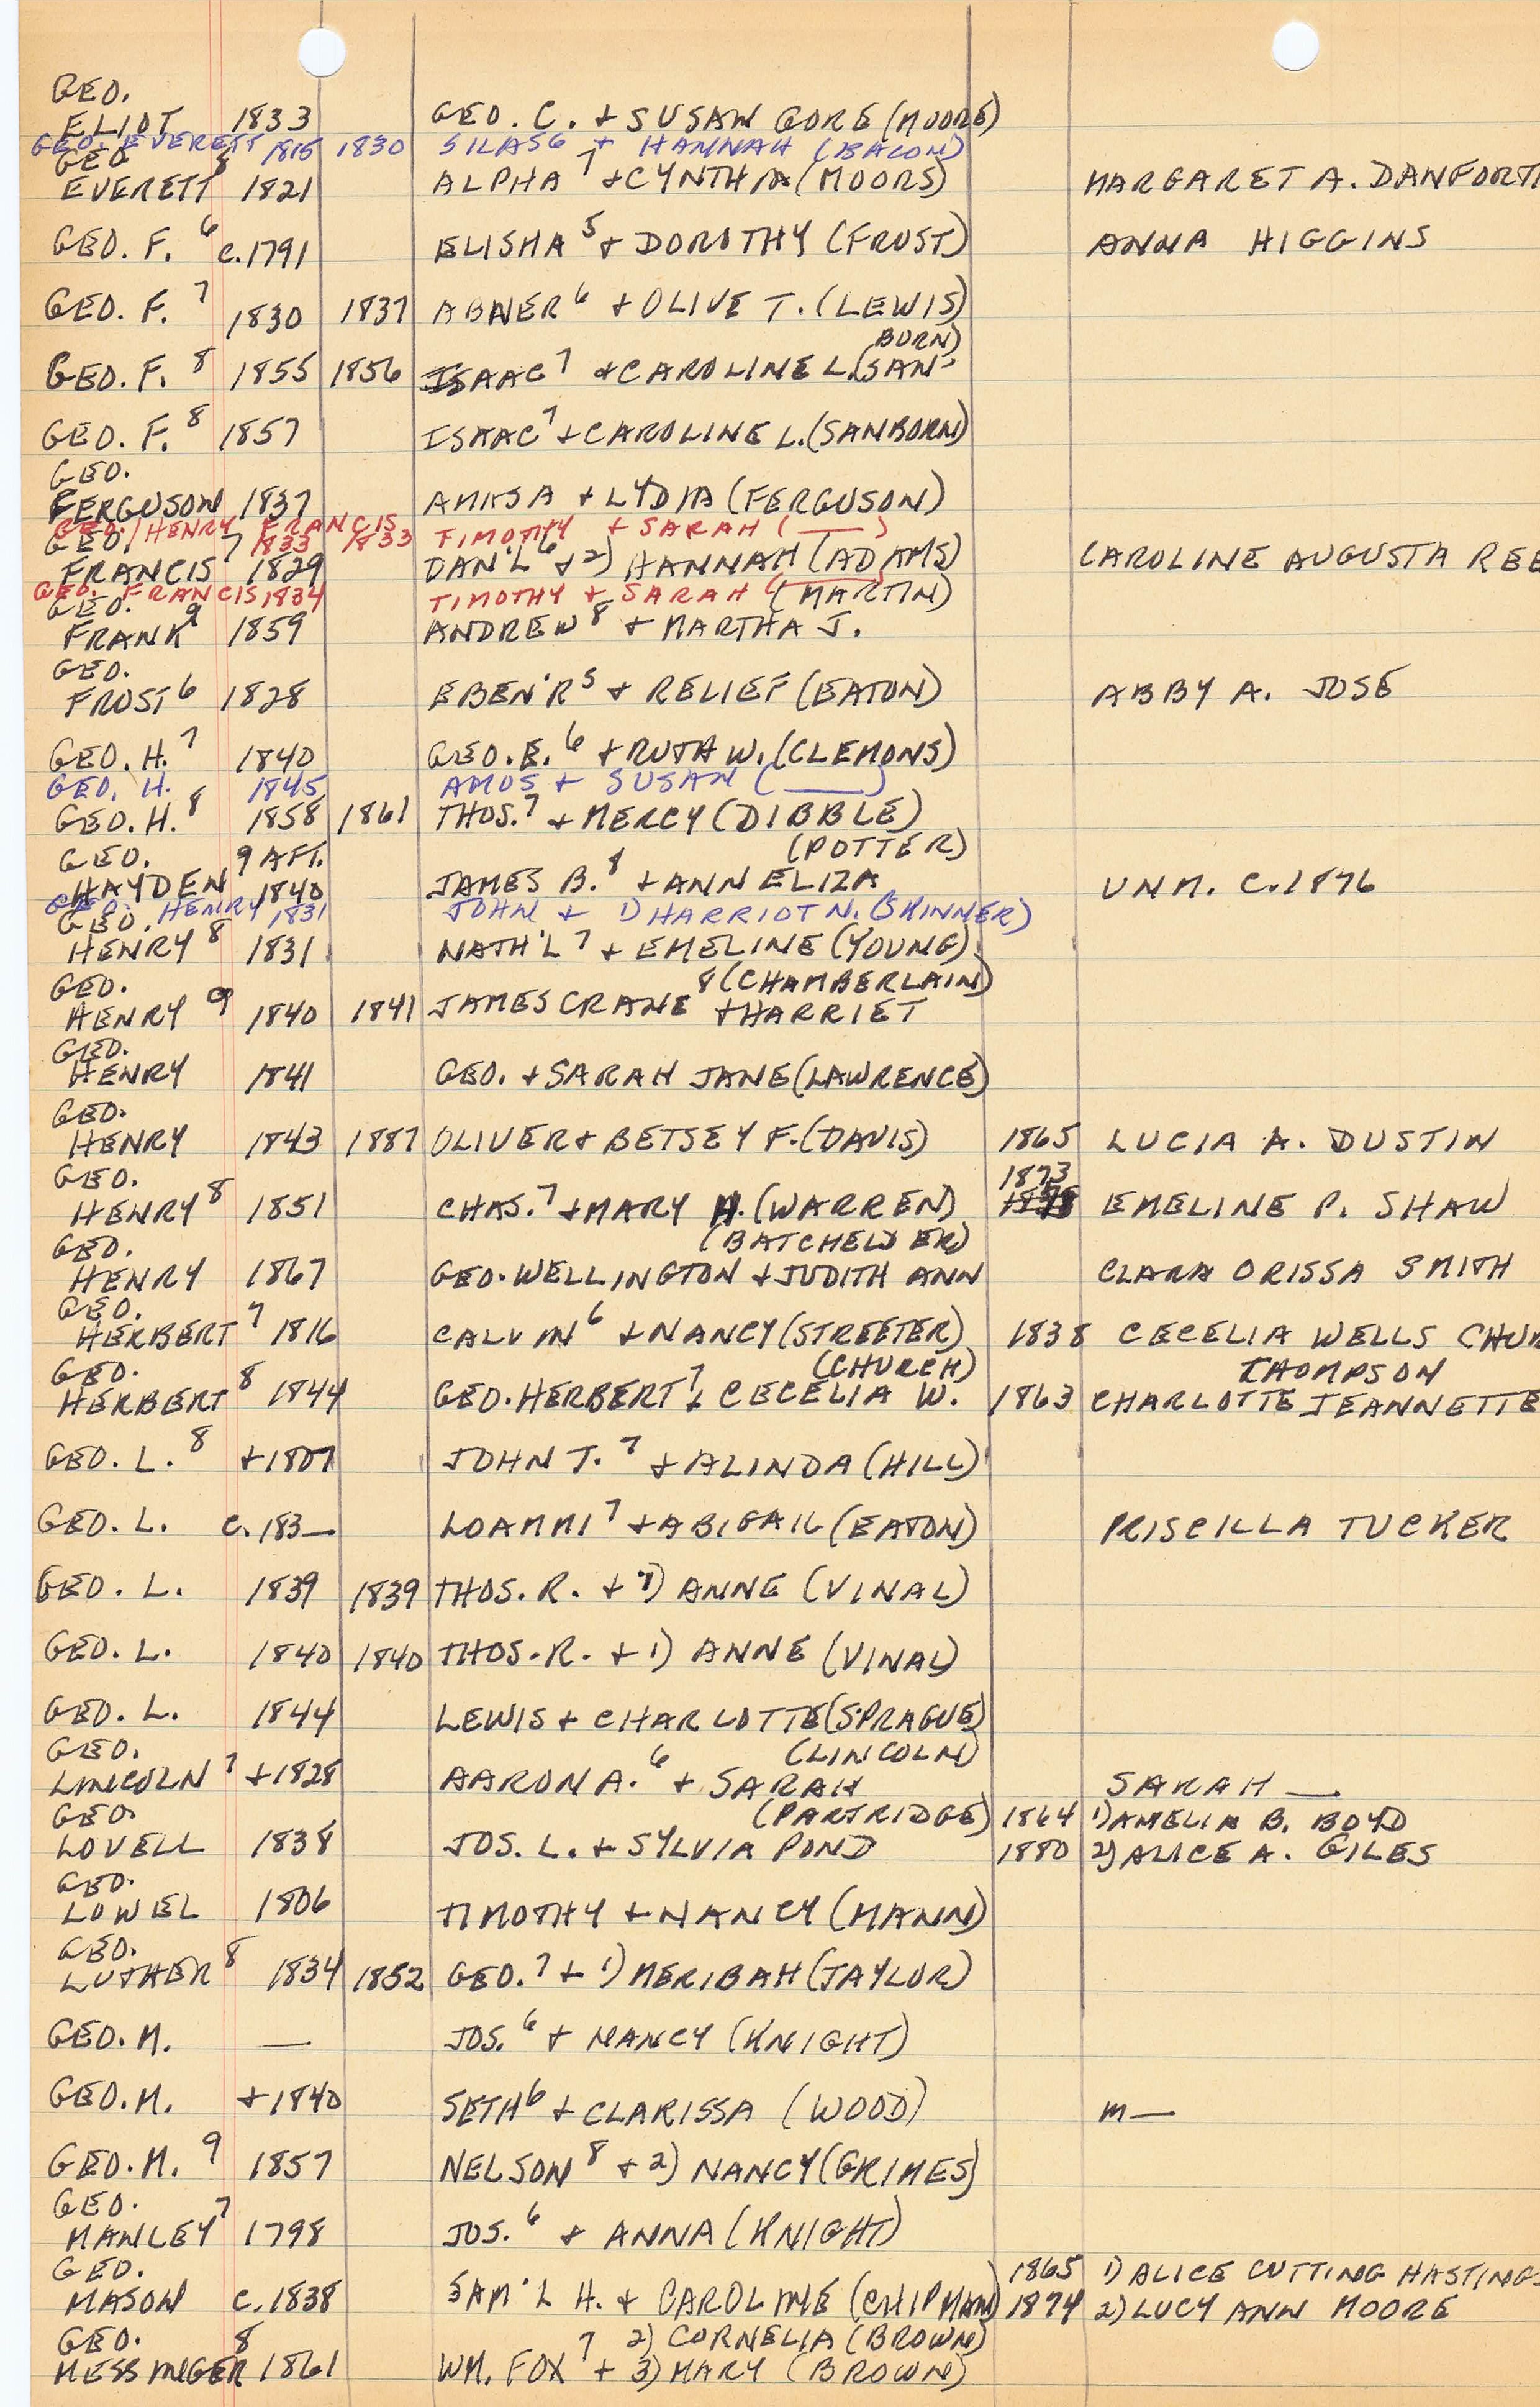 GEO.
ELIOT 1833 GEO. C. + SUSAN GORE (MOORE)
GEO. EVERETT 1815 1830 SILAS6 + HANNAH (BACON)
GEO 8
EVERETT 1821 ALPHA 7 + CYNTHIA (MOORS) MARGARET A. DANFORT
GEO. F. 6 c. 1791 ELISHA 5 + DOROTHY (FROST) ANNA HIGGINS
GEO. F. 7 1830 1837 ABNER 6 + OLIVE T. (LEWIS)
BORN)
GEO. F. 8 1855 1856 ISAAC 7 + CAROLINE L. (SAN-
GEO. F. 8 1857 ISAAC 7 + CAROLINE L. (SANBORN)
GEO.
FERGUSON 1837 AMASA + LYDIA (FERGUSON)
GEO. / HENRY FRANCIS 1833 1833 TIMOTHY + SARAH ( — )
GEO. 7
FRANCIS 1829 DAN'L 6 + 2) HANNAH (ADAMS) CAROLINE AUGUSTA REE
GEO. FRANCIS 1834 TIMOTHY + SARAH ( —
GEO. (MARTIN)
FRANK 9 1859 ANDREW 8 + MARTHA J.
GEO.
FROST 6 1828 EBEN'R 5 + RELIEF (EATON) ABBY A. JOSE
GEO. H. 7 1840 GEO. E. 6 + RUTH W. (CLEMONS)
GEO. H. 1845 AMOS + SUSAN ( — )
GEO. H. 8 1858 1861 THOS. 7 + MERCY (DIBBLE)
GEO. 9 AFT. (POTTER)
HAYDEN 1840 JAMES B. 8 + ANN ELIZA UNM. C. 1876
GEO. HENRY 1831 JOHN + 1) HARRIOT N. (SKINNER)
GEO.
HENRY 8 1831 NATH'L 7 + EMELINE (YOUNG)
GEO. 8 (CHAMBERLAIN)
HENRY 9 1840 1841 JAMES CRANE + HARRIET
GEO.
HENRY 1841 GEO. + SARAH JANE (LAWRENCE)
GEO.
HENRY 1843 1887 OLIVER + BETSEY F. (DAVIS) 1865 LUCIA A. DUSTIN
GEO. 1873
HENRY 8 1851 CHAS. 7 + MARY H. (WARREN) EMELINE P. SHAW
GEO. (BATCHELDER)
HENRY 1867 GEO. WELLINGTON + JUDITH ANN CLARA ORISSA SMITH
GEO.
HERBERT 7 1816 CALVIN 6 + NANCY (STREETER) 1838 CECELIA WELLS CHUR
GEO. (CHURCH) THOMPSON
HERBERT 8 1844 GEO. HERBERT 7 + CECELIA W. 1863 CHARLOTTE JEANNETTE
GEO. L. 8 +1807 JOHN T. 7 + ALINDA (HILL)
GEO. L. c. 183— LOAMMI 7 + ABIGAIL (EATON) PRISCILLA TUCKER
GEO. L. 1839 1839 THOS. R. + 1) ANNE (VINAL)
GEO. L. 1840 1840 THOS. R. + 1) ANNE (VINAL)
GEO. L. 1844 LEWIS + CHARLOTTE (SPRAGUE)
GEO. (LINCOLN)
LINCOLN 7 +1828 AARON A. 6 + SARAH SARAH —
GEO. (PARTRIDGE) 1864 1) AMELIA B. BOYD
LOVELL 1838 JOS. L. + SYLVIA POND 1880 2) ALICE A. GILES
GEO.
LOWEL 1806 TIMOTHY + NANCY (MANN)
GEO.
LUTHER 8 1834 1852 GEO. 7 + 1) MERIBAH (TAYLOR)
GEO. M. — JOS. 6 + NANCY (KNIGHT)
GEO. M. +1840 SETH 6 + CLARISSA (WOOD) m—
GEO. M. 9 1857 NELSON 8 + 2) NANCY (GRIMES)
GEO.
MANLEY 7 1798 JOS. 6 + ANNA (KNIGHT)
GEO. 1865 1) ALICE CUTTING HASTINGS
MASON c. 1838 SAM'L H. + CAROLINE (CHIPMAN) 1874 2) LUCY ANN MOORE
GEO. 2) CORNELIA (BROWN)
MESSINGER 8 1861 WM. FOX 7 + 3) MARY (BROWN)